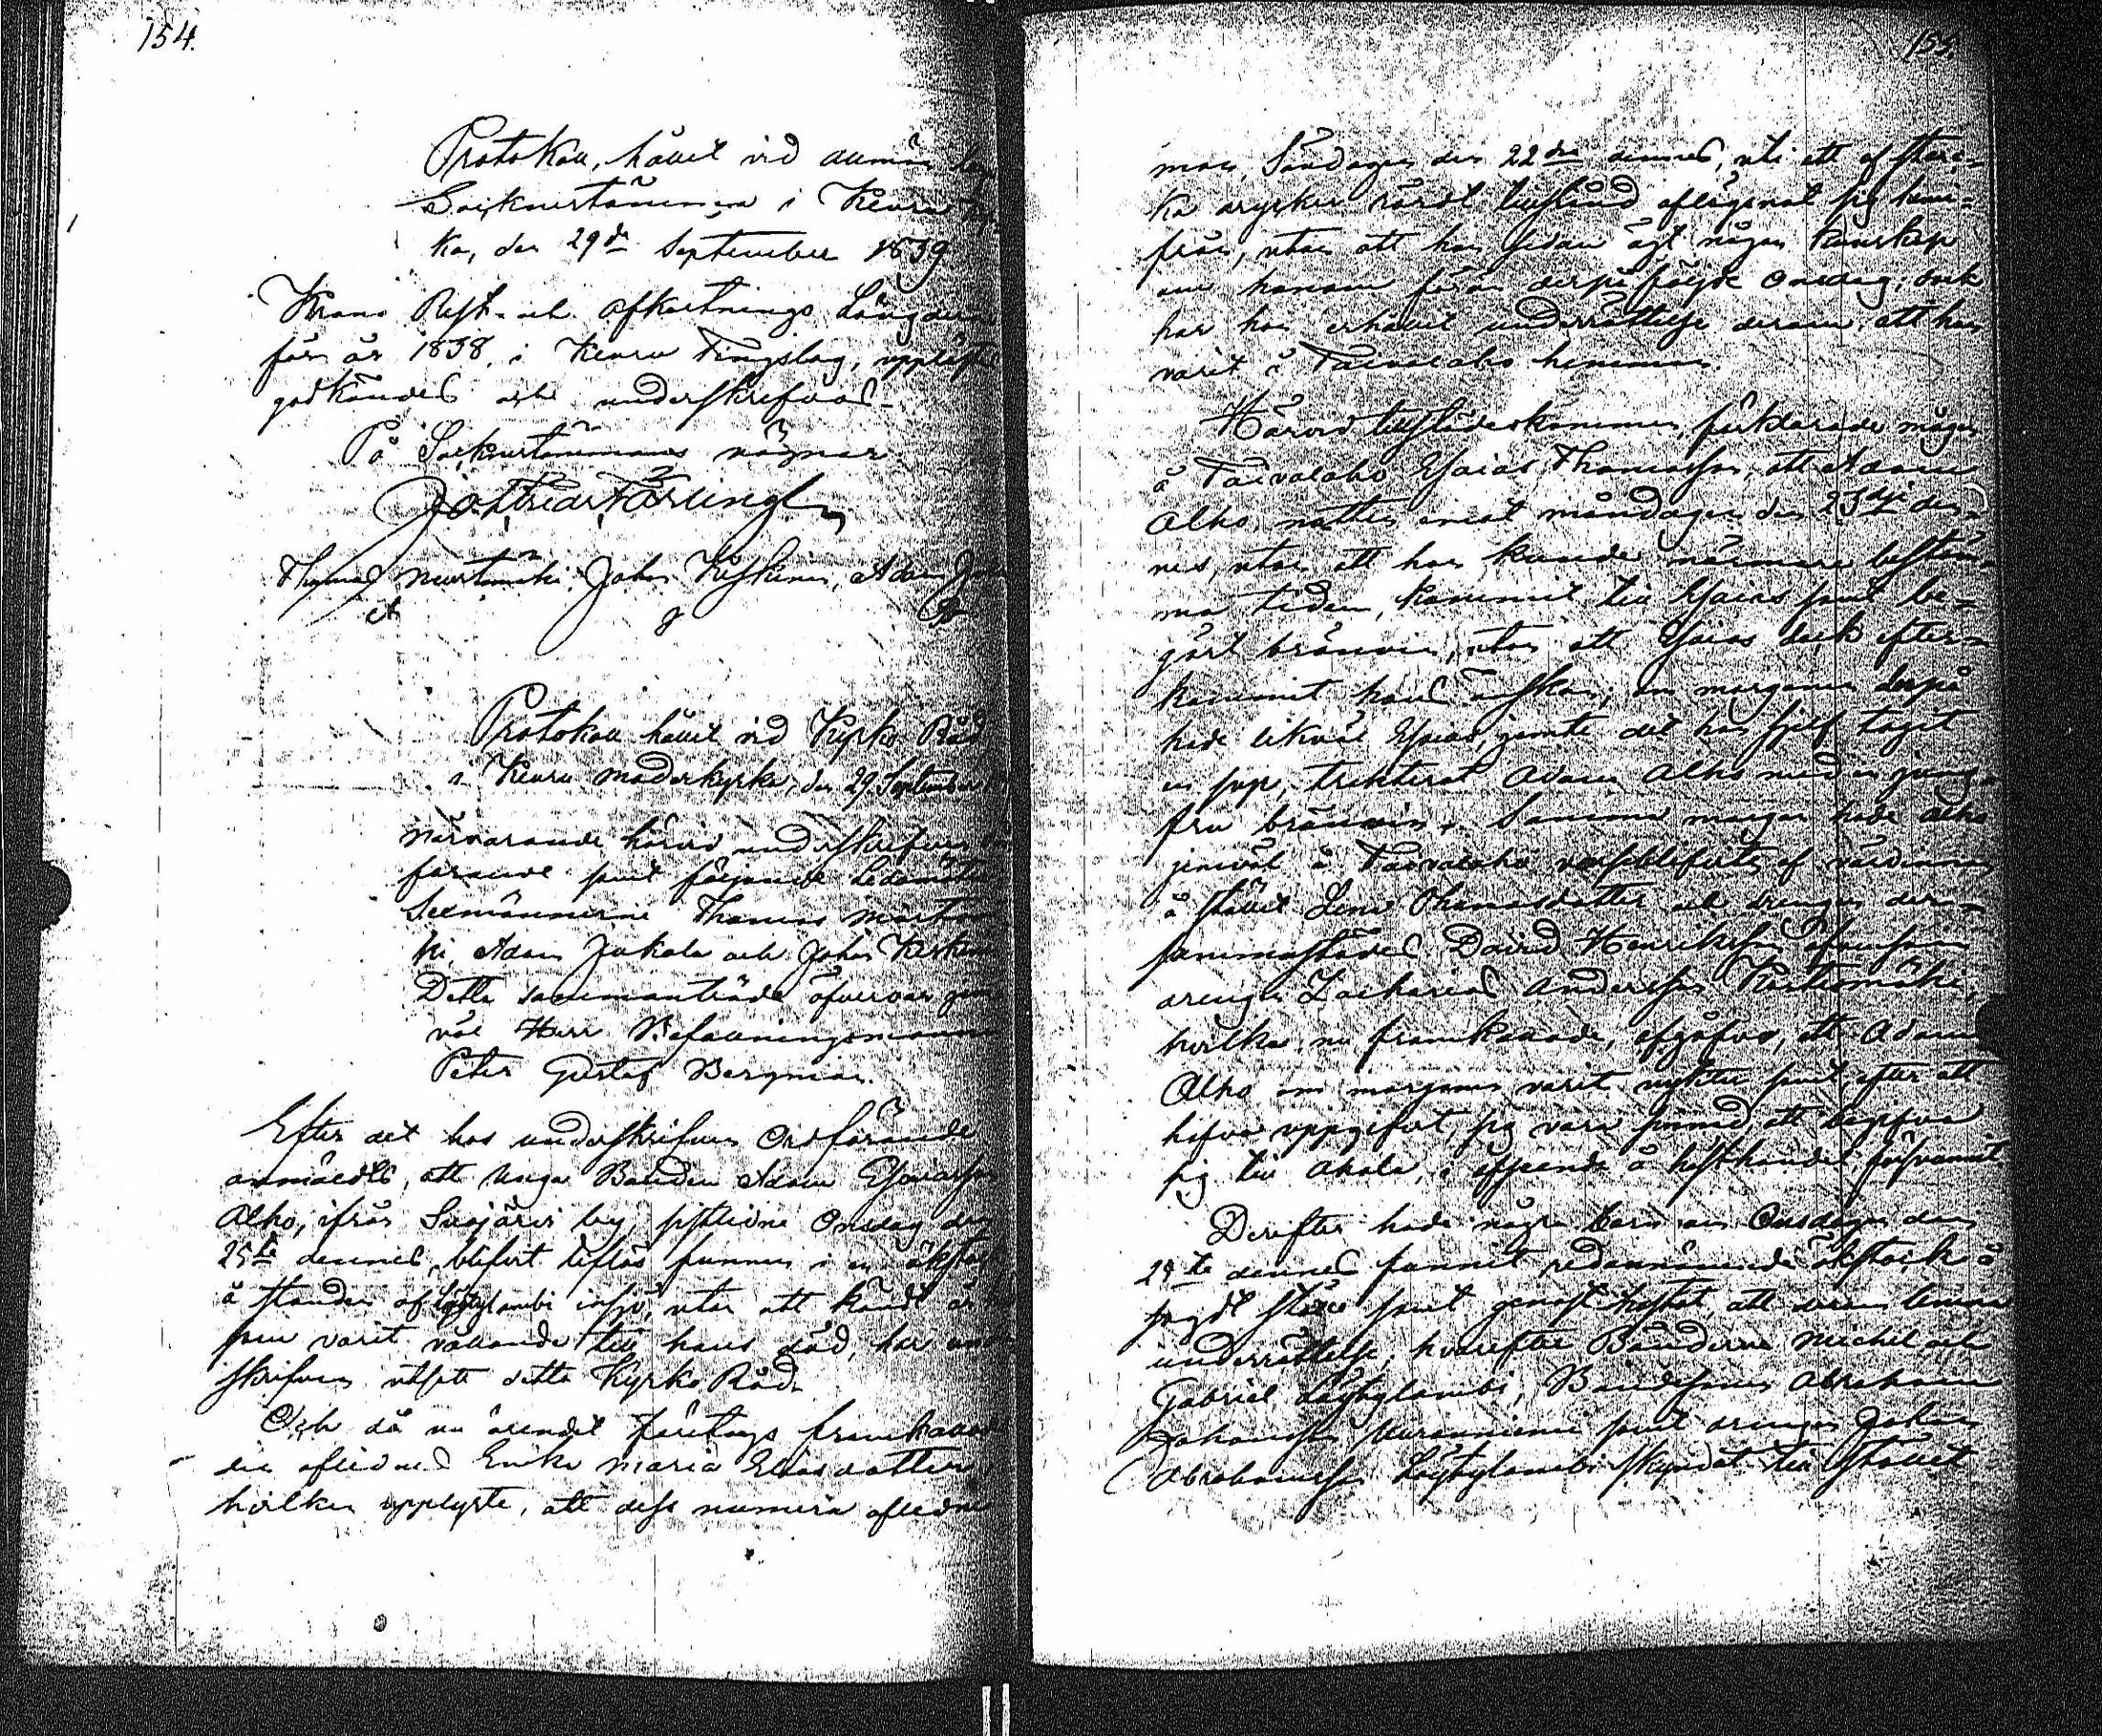 154.
Protokoll, hållit vid allmän
Sockenstämma i Keuru
ka, den 29de September 1839
Krono Rest- och Afkortnings Längderne
för år 1838, i Keuru Tingslag, upplästes
godkändes och underskrefvos.
På Sockenstämmans vägnar
Thomas Murtomäki Johan Keskinen, Adam
Protokoll hållit vid Kyrko Råd
i Keuru moderkyrka, den 29 September
Närvarande härvid underskrifven
förande samt följande Ledamöter
Sexmännerne Thomas Murtomä
ki, Adam Jukola och Johan Keskinen
Detta sammanträde öfvervar jem
väl Herr Befallningsmannen
Peter Gustaf Bergman.
Efter det hos underskrifven Ordförande
anmäldts, att unga Bonden Adam Esaiasson
Alho, ifrån Suojärvi by, sistledne Onsdag den
25te dennes, blifvit liflös funnen i en ökstock
å stranden af Löytylambi insjö, utan att kändt är
som varit vållande till hans död, har under
skrifven utsatt detta Kyrko Råd.
Och då nu ärendet företogs framkallades
den aflidnes Enka Maria Eliasdotter,
hvilken upplyste, att dess numera aflidne
155.
man, Söndagen den 22dra dennes, uti ett af star-
ka drycker rördt tillstånd aflägsnat sig hem-
ifrån, utan att hon sedan ägt någon kunskap
om honom förr än derpåföljde Onsdag; dock
har hon erhållit underrättelse derom, att han
varit å Taivalaho hemman.
Härvid tillstädeskommen, förklarade mågen
å Taivalaho Esaias Thomasson, att Adam
Alho, natten emot måndagen den 23dje den-
nes, utan att han kunde närmare bestäm-
ma tiden, kommit till Esaias samt be-
gärt brännvin, utan att Esaias dock efter-
kommit hans önskan; om morgonen derpå
hade likväl Esaias, jemte det han sjelf tagit
en sup, trakterat Adam Alho med en jung-
fru brännvin. Samma morgon hade Alho
jemväl å Taivalaho varseblifvits af värdinnan
å stället Lena Thomasdotter och drengen der-
sammastädes David Henriksson äfvensom
drengen Zacharias Andersson Kustomäki,
hvilka, nu framkallade, uppgåfvo, att Adam
Alho om morgonen varit nykter samt efter att
hafva uppgifvit, sig vara sinnad, att begifva
sig till Ahola, i afseende å hästhandel, försvunnit.
Derefter hade några barn om Onsdagen den
25te dennes funnit redannämnde ökstock å
sagdt ställe samt genast hastat, att derom lemna
underrättelse; hvarefter Bönderne Michel och
Gabriel Löytylambi, Bondesonen Abraham
Johansson Puranniemi samt drengen Johan
Abrahamsson Löytylambi skyndat till stället